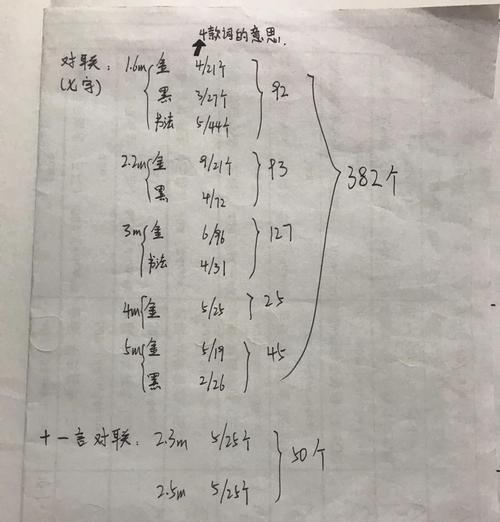 4款词的意思.
对联: 1.6m 金 4/21个
(七字) 黑 3/27个 92
书法 5/44个
2.2m 金 9/21个 93
黑 4/72
382个
3m 金 6/96 127
书法 4/31
4m 金 5/25 25
5m 金 5/19 45
黑 2/26
十一言对联: 2.3m 5/25个
50个
2.5m 5/25个